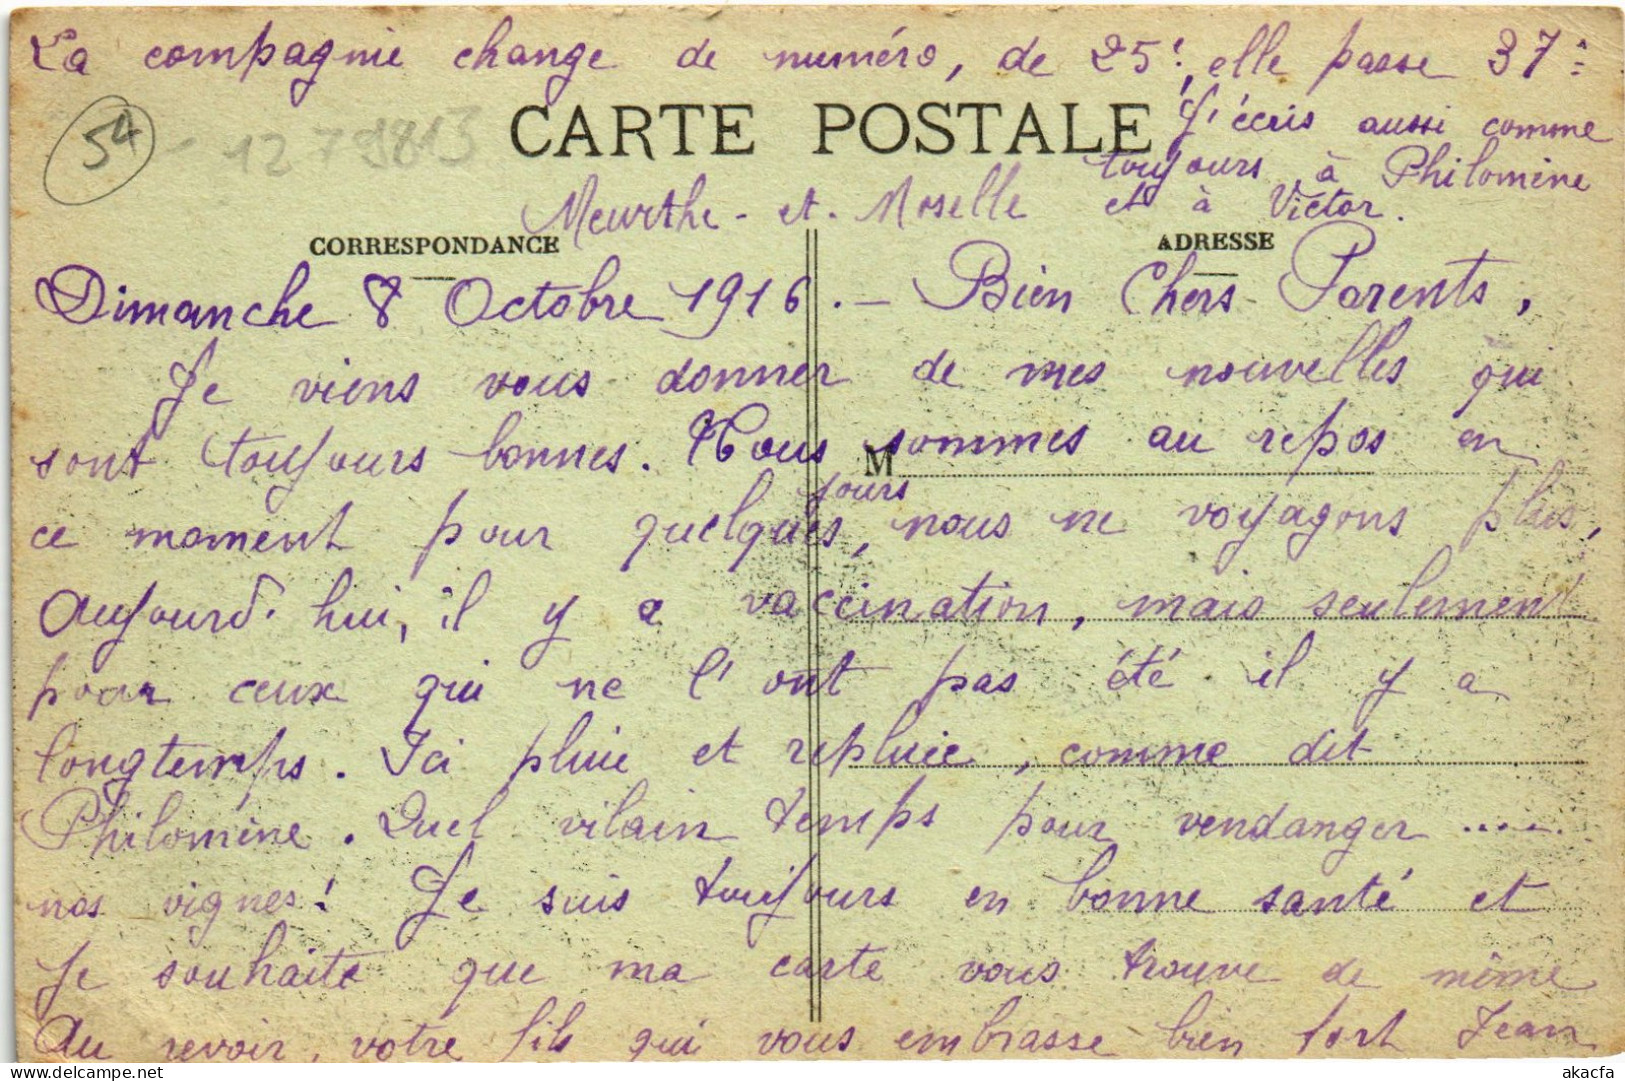 La compagnie change de numéro, de 25è, elle passe 37è
CARTE POSTALE
J'écris aussi comme
toujours à Philomène
et à Victor.
54 - 1279813
Meurthe-et-Moselle
CORRESPONDANCE
ADRESSE
Dimanche 8 Octobre 1916. - Bien Chers Parents,
Je viens vous donner de mes nouvelles qui
sont toujours bonnes. Nous sommes au repos en
M
jours
ce moment pour quelques, nous ne voyagons plus,
Aujourd'hui, il y a vaccination, mais seulement
pour ceux qui ne l'ont pas été il y a
longtemps. Ici pluie et repluie, comme dit
Philomène. Quel vilain temps pour vendanger .....
nos vignes! Je suis toujours en bonne santé et
je souhaite que ma carte vous trouve de même
Au revoir, votre fils qui vous embrasse bien fort Jean
akacfa